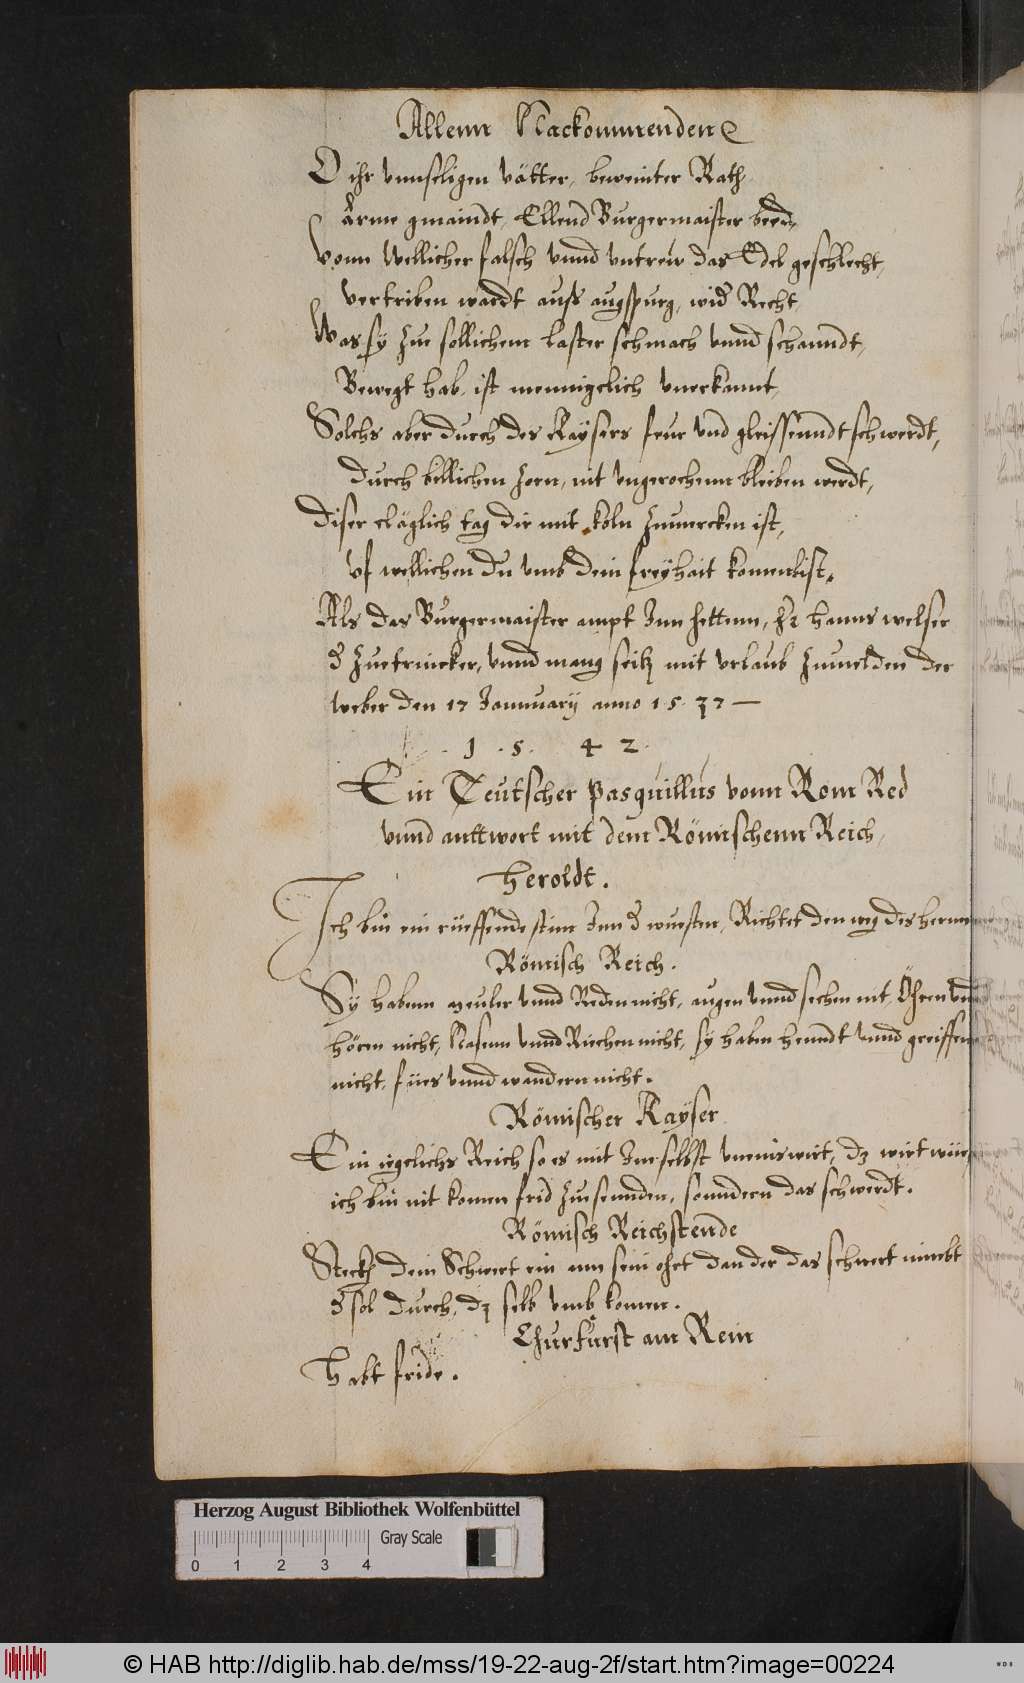 Allenn Nackommenden
O ihr vnnseligen vätter, beweinter Rath
Arme gmaindt, Ellend Burgermaister beed
Vonn wellicher falsch vnnd vntrew das Edel geschlecht,
Vertriben wardt auss augspurg, wid Recht
Was sy zue sollichem laster schmach vnnd schanndt,
Bewegt hab ist mennigelich vnerkannt,
Solchs aber durch des Kaysers feur vnd gleissenndt schwerdt,
durch billichen zorn, nit vngerochenn bleiben werdt,
Diser cläglich tag dir mit koln zumercken ist,
vf wellichen du vmb dein freyhait komen bist.
Als das Burgermaister ampt Inn hettenn, Hr hanns welser
d Zuetrincker, vnnd mang seitz mit vrlaub zumelden der
weber den 17 Jannuarij anno 1537
1.5. 42.
Ein Teutscher Pasquillus vonn Rom Red
vnnd anttwort mit dem Römischenn Reich,
Heroldt.
Ich bin ein rüeffende stim Inn d wuesten, Richtet den weg des herrnn
Römisch Reich.
Sy habenn meuler vnnd Reden nicht, augen vnnd sechen nit, Ohren vnd
hören nicht, Nasenn vnnd Riechen nicht, sy haben henndt vnnd greiffen
nicht, fües vnnd wandern nicht.
Römischer Kayser
Ein iegelichs Reich so es mit Ime selbst vneinis wirt, dz wirt wüe
ich bin nit komen frid zuesennden, sonndern das schwerdt.
Römisch Reichstende
Steckh dein Schwert ein ann sein ohrt dan der das schwert nimbt
d sol durch dz selb vmbkomen.
Churfürst am Rein
Habt fride.
Herzog August Bibliothek Wolfenbüttel
Gray Scale
0 1 2 3 4
© HAB http://diglib.hab.de/mss/19-22-aug-2f/start.htm?image=00224